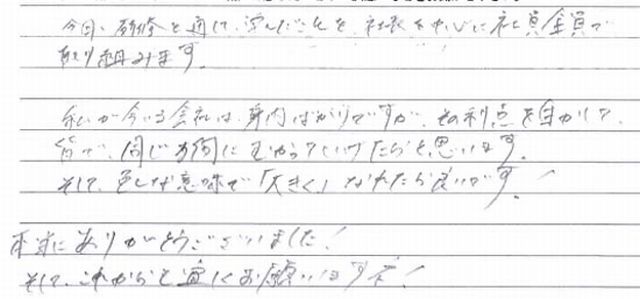 今回、研修を通して、学んだことを、社長を中心に社員全員で
取り組みます。
私が今いる会社は、身内ばかりですが、その利点を生かして、
皆で、同じ方向にむかっていけたらと思います。
そして、色んな意味で「大きく」なれたら良いです!
本当にありがとうございました!
そして、これからも宜しくお願いします!